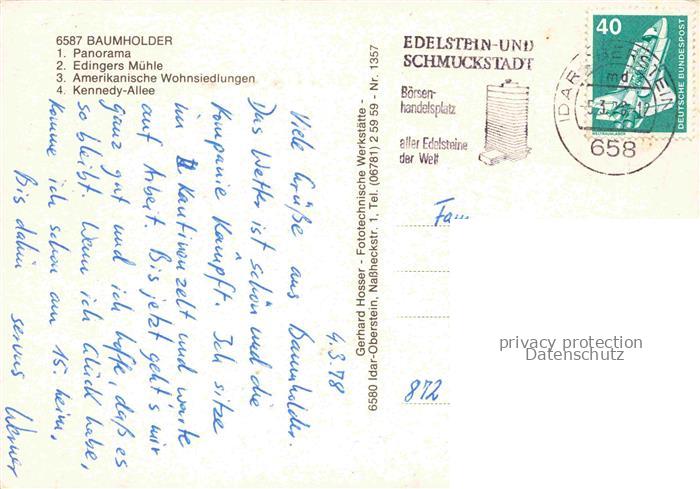 6587 BAUMHOLDER
1. Panorama
2. Edingers Mühle
3. Amerikanische Wohnsiedlungen
4. Kennedy-Allee
4.3.78
Viele Grüße aus Baumholder.
Das Wetter ist schön und die
Kompanie kämpft. Ich sitze
im Kantinenzelt und warte
auf Arbeit. Bis jetzt geht's mir
ganz gut und ich hoffe, daß es
so bleibt. Wenn ich Glück habe,
komme ich schon am 15. heim.
Bis dahin servus Werner
Gerhard Hosser - Fototechnische Werkstätte - Nr. 1357
6580 Idar-Oberstein, Naßheckstr. 1, Tel. (06781) 2 59 59
EDELSTEIN-UND
SCHMUCKSTADT
Börsen-
handelsplatz
aller Edelsteine
der Welt
IDAR
STEIN
658
40
DEUTSCHE BUNDESPOST
Fa
872
privacy protection
Datenschutz